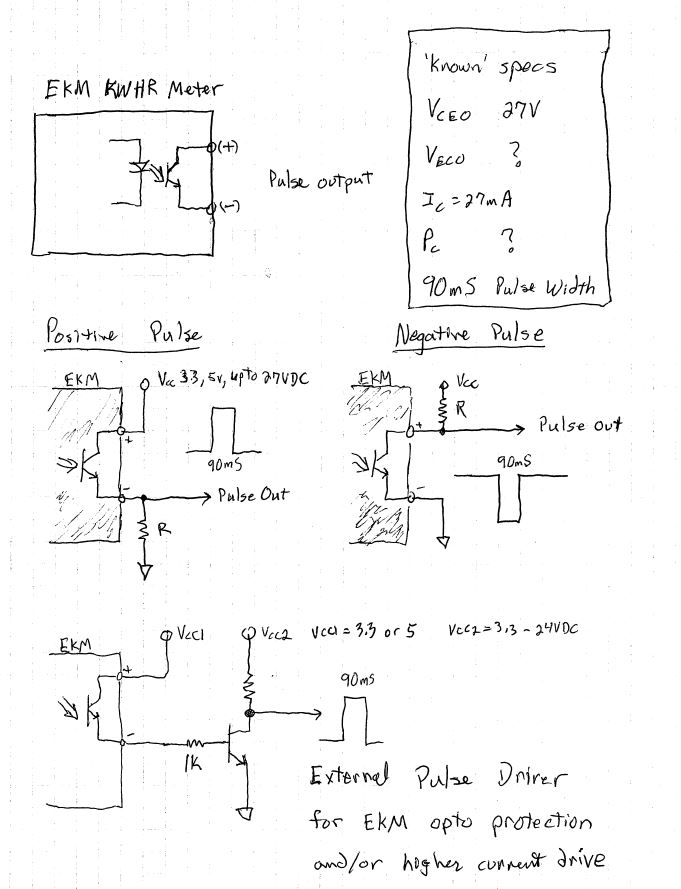 EKM KWHR Meter
(+)
(-)
Pulse output
'Known' specs
VCEO 27V
VECO ?
IC = 27mA
PC ?
90mS Pulse Width
Positive Pulse
EKM
Vcc 3.3, 5v, up to 27VDC
+
90mS
-
Pulse Out
R
Negative Pulse
EKM
Vcc
R
+
Pulse out
90mS
-
EKM
Vcc1
Vcc2 Vcc1 = 3.3 or 5 Vcc2 = 3.3 - 24VDC
+
90mS
-
1K
External Pulse Driver
for EKM opto protection
and/or higher current drive